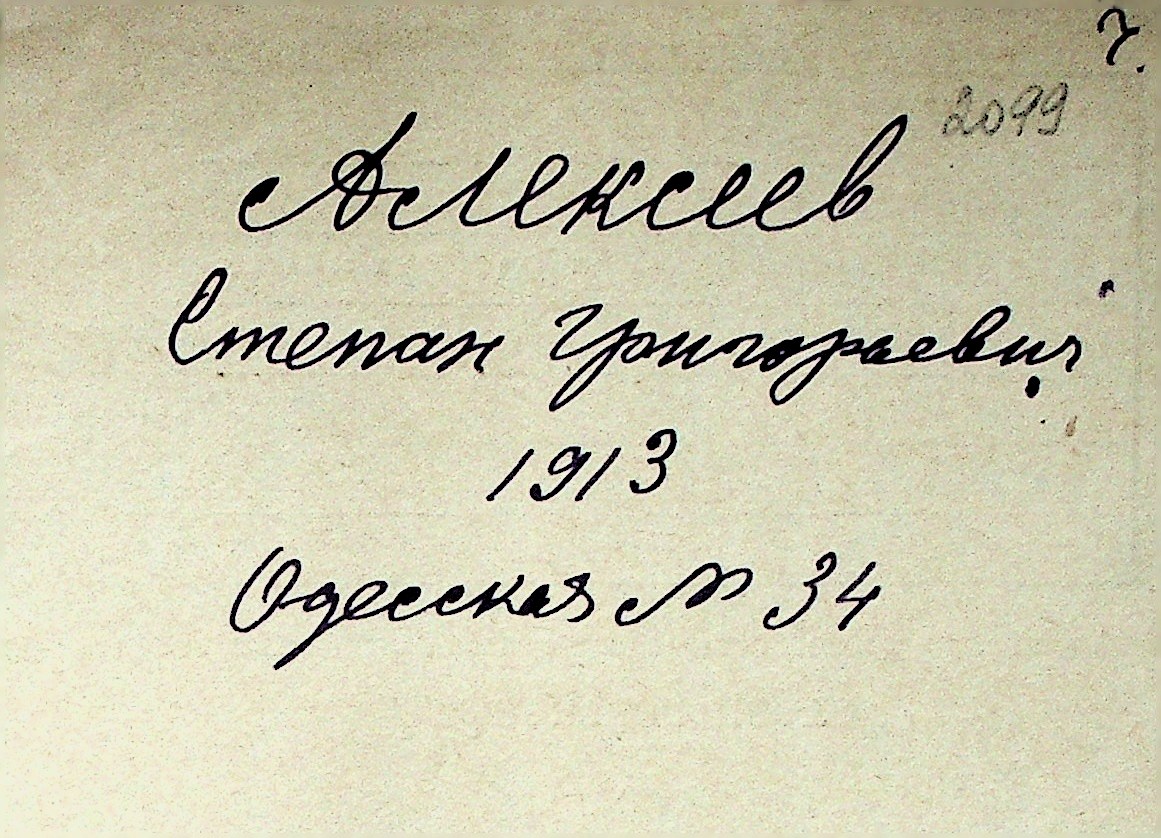 2099
Алексеев
Степан Григорьевич
1913
Одесская № 34